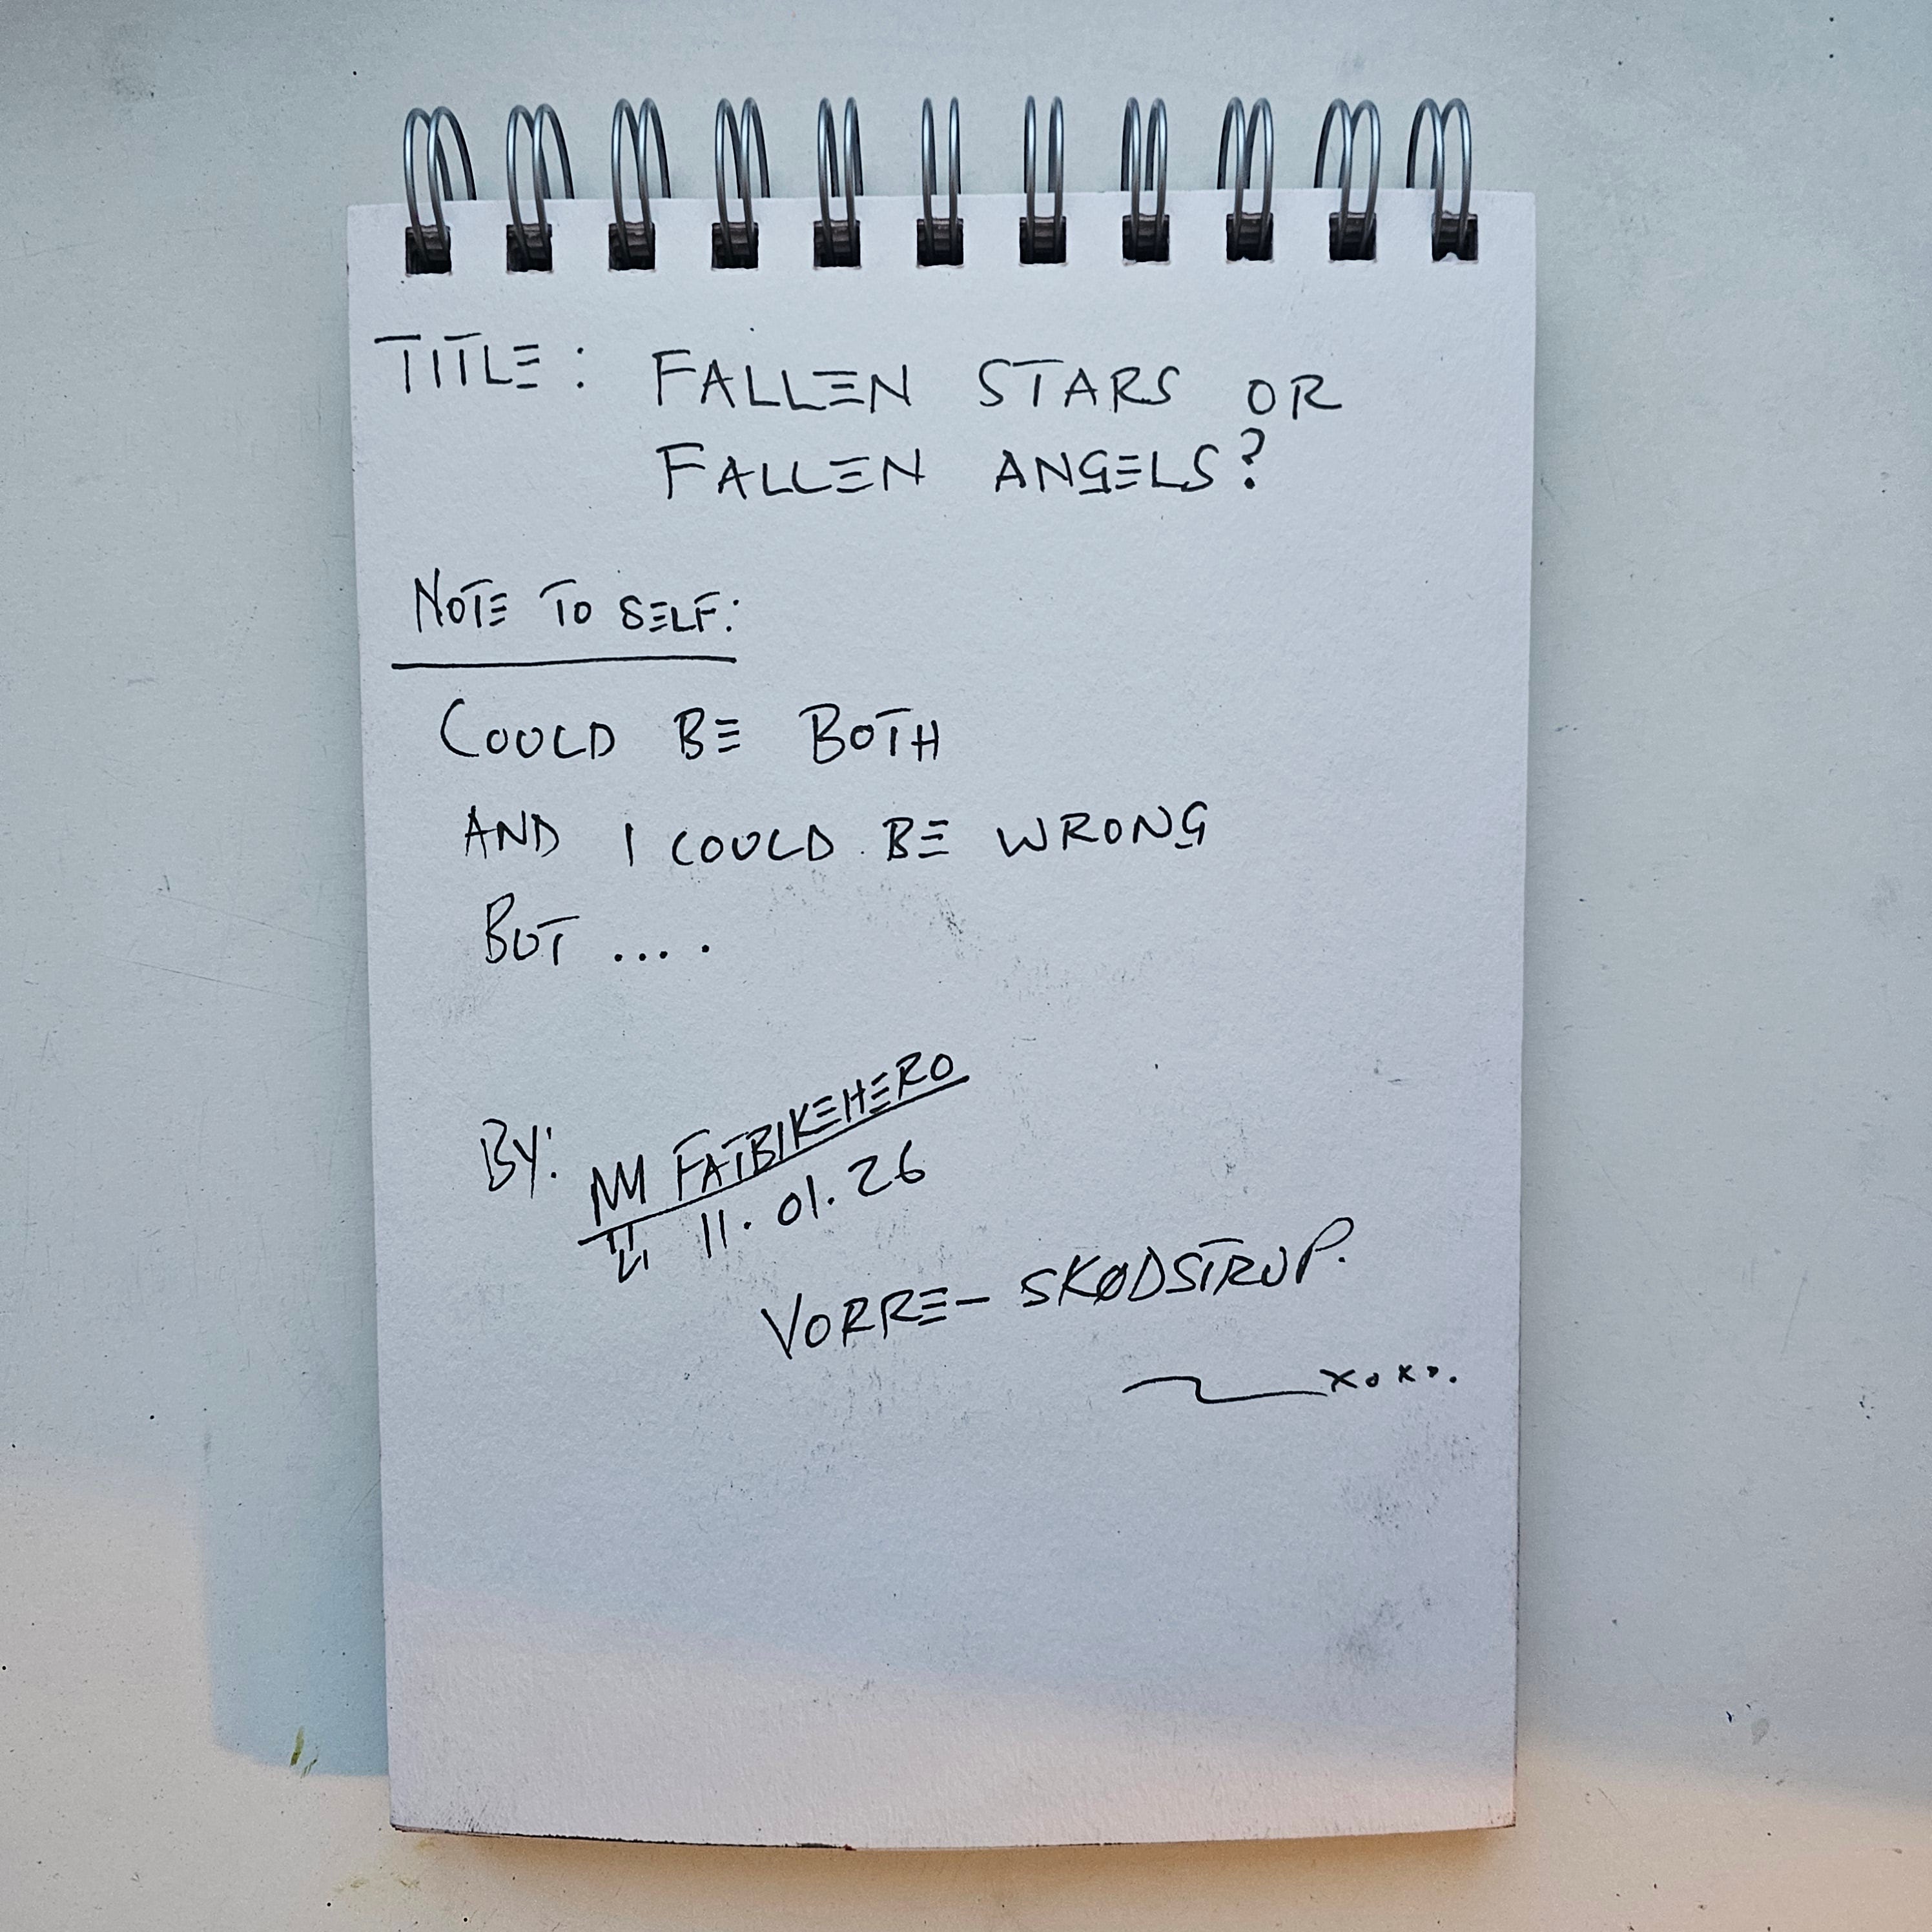 TITLE: FALLEN STARS OR
FALLEN ANGELS?
NOTE TO SELF:
COULD BE BOTH
AND I COULD BE WRONG
BUT ....
BY: FATBIKEHERO
11.01.26
VORRE- SKØDSTRUP.
xoxo.